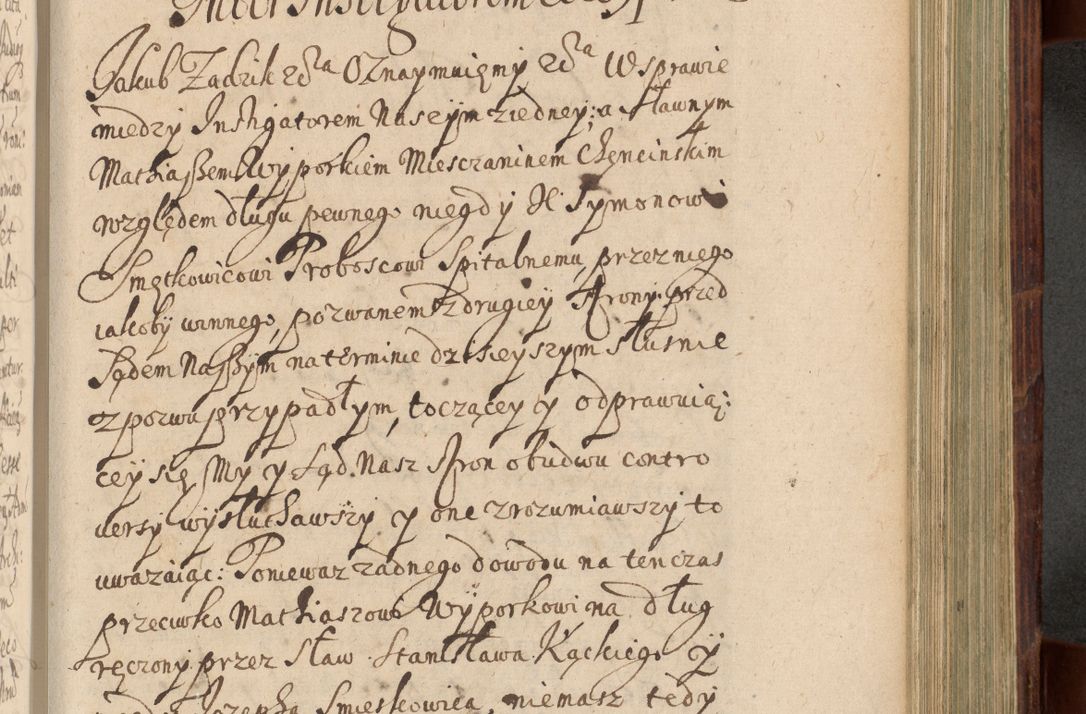 Inter Instigatorem
Jakub Zadzik etca Oznaymuięmy etca W sprawie
miedzy Instigatorem Naszÿm ziedney: a Sławnym
Mathiaßem Wÿporkiem Miesczaninem Chęncinskim
względem długu pewnego niegdÿ X: Symonowi
Smętkowicowi Proboscowi Spitalnemu, przez niego
iakobÿ winnego, pozwanem z drugieÿ strony przed
Sądem Naßÿm na terminie dzisieyszym słusnie
z pozwu przypadłym, toczącey y odprawuią:
ceÿ się, My y Sąd Nasz stron obudwu contro
versÿ wÿsłuchawszÿ y one zrozumiawszÿ to
uwazaiąc: Poniewaz zadnego dowodu na tenczas
przeciwko Mathiaszowi Wÿporkowi na dług
ręczonÿ przez Sław. Stanisława Kąckiego y
Jozepha Smieskowica, niemasz tedy